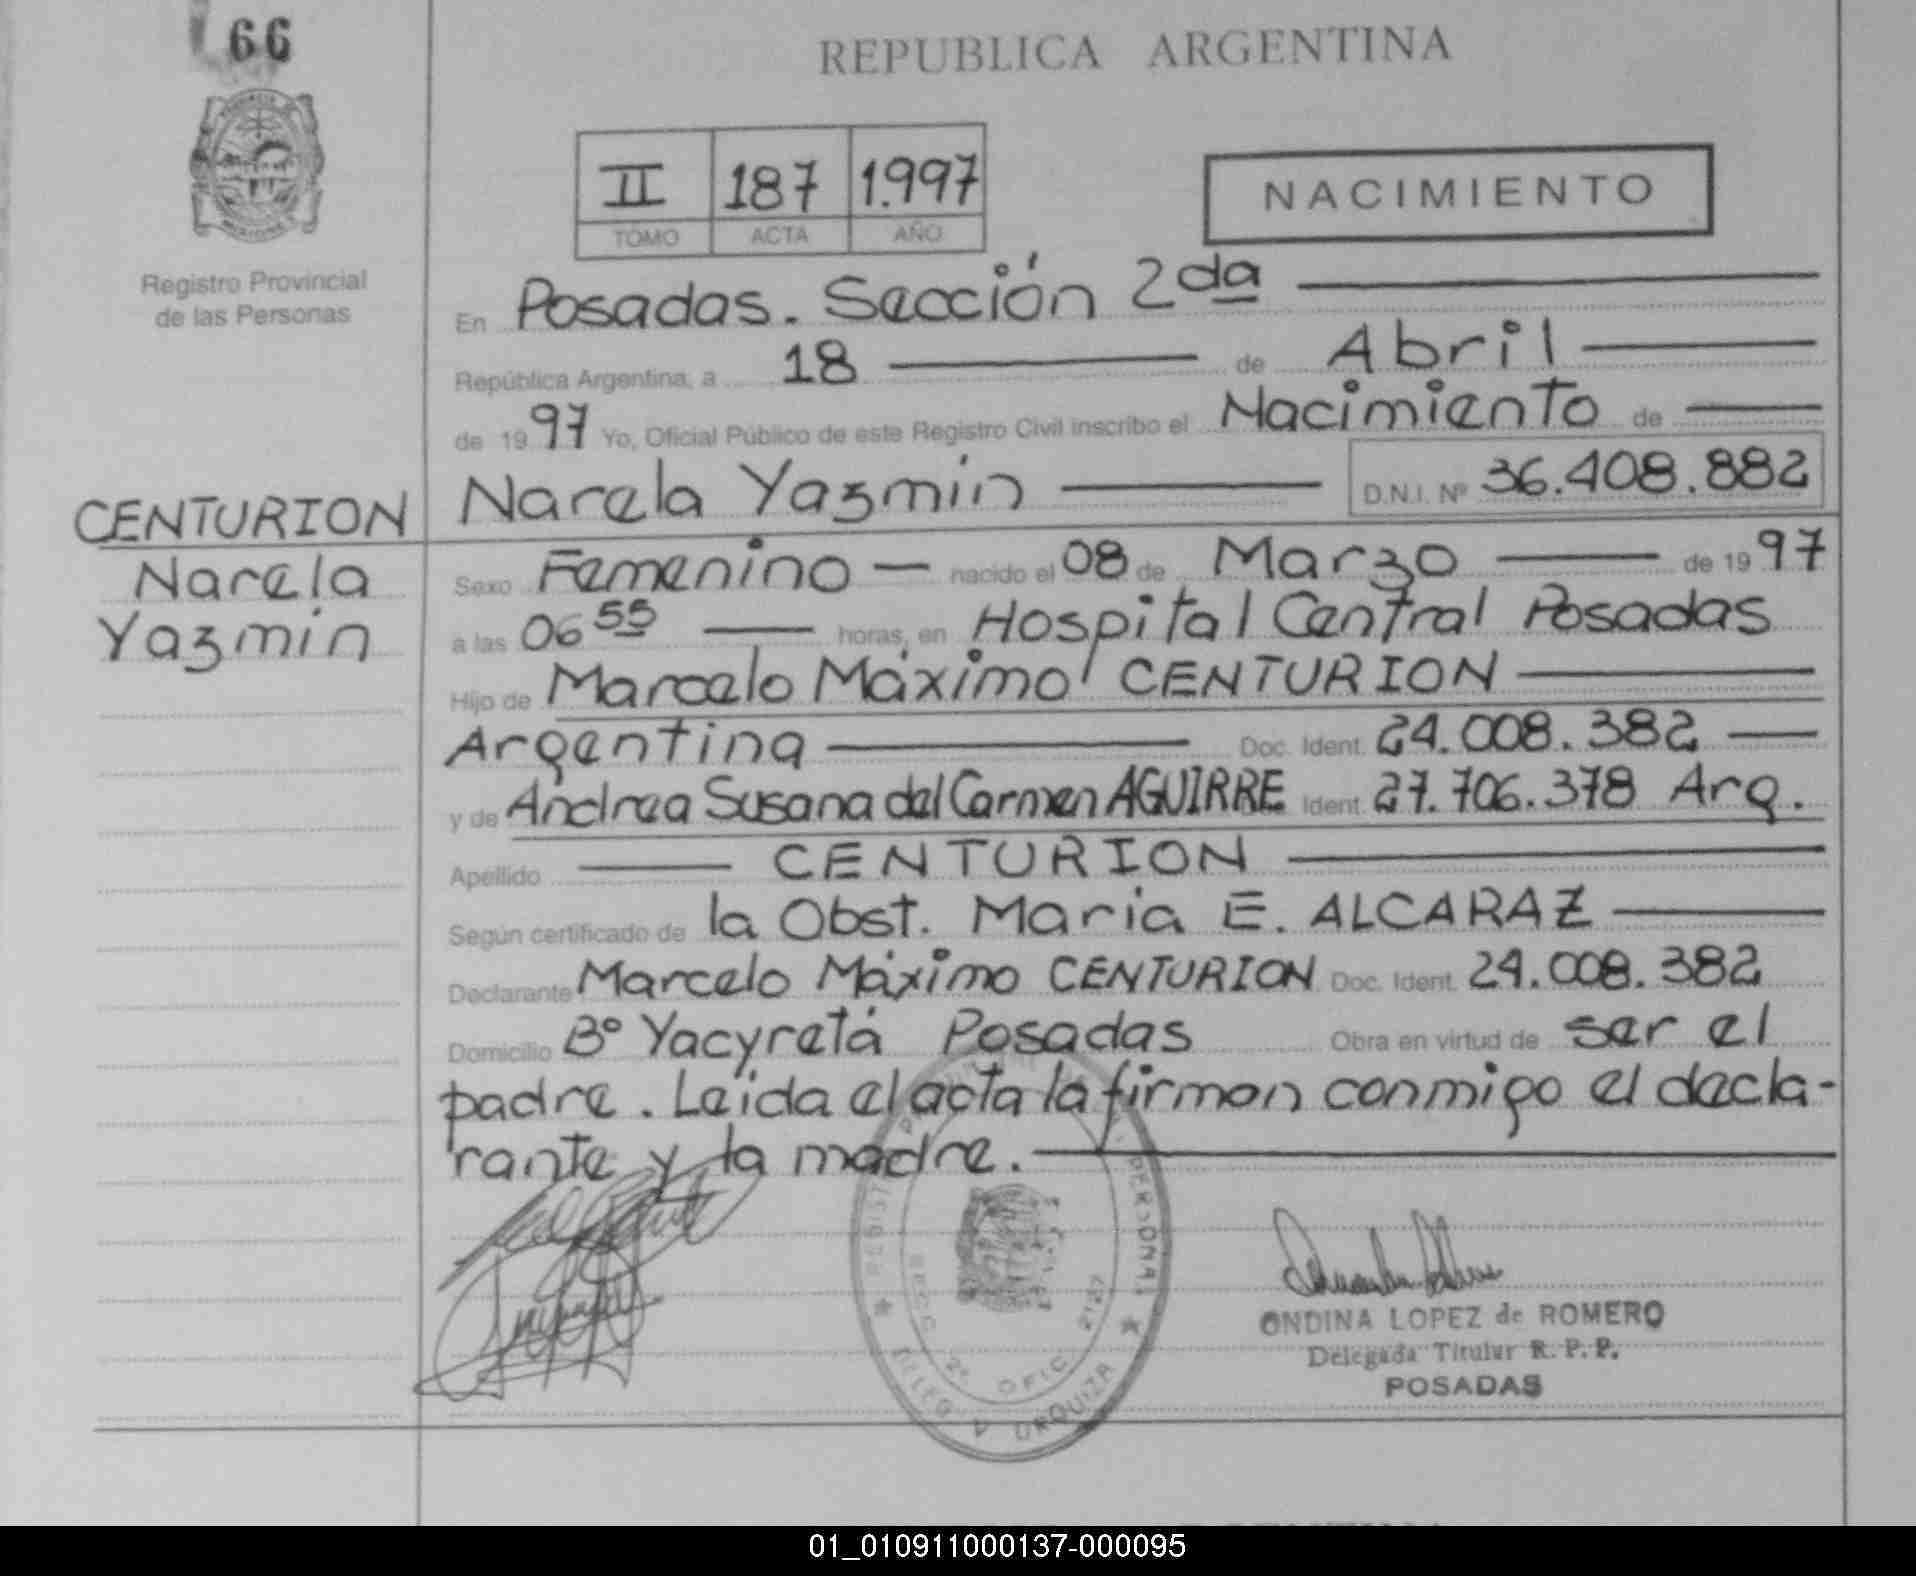 66
REPUBLICA ARGENTINA
II 187 1.997
TOMO ACTA AÑO
NACIMIENTO
Registro Provincial
de las Personas
En Posadas. Sección 2da
República Argentina, a 18 de Abril
de 1997 Yo, Oficial Público de este Registro Civil inscribo el Nacimiento de
Narela Yazmin D.N.I. Nº 36.408.882
CENTURION
Narela
Yazmin
Sexo Femenino nacido el 08 de Marzo de 1997
a las 06 55 horas, en Hospital Central Posadas
Hijo de Marcelo Máximo CENTURION
Argentina Doc. Ident. 24.008.382
y de Andrea Susana del Carmen AGUIRRE Ident. 27.706.378 Arg.
Apellido CENTURION
Según certificado de la Obst. Maria E. ALCARAZ
Declarante Marcelo Máximo CENTURION Doc. Ident. 24.008.382
Domicilio Bº Yacyretá Posadas Obra en virtud de ser el
padre. Leida el acta la firman conmigo el decla-
rante y la madre.
SECC. 2º OFIC. 2187
DELEG. V. URQUIZA
ONDINA LOPEZ de ROMERO
Delegada Titular R. P. P.
POSADAS
01_010911000137-000095